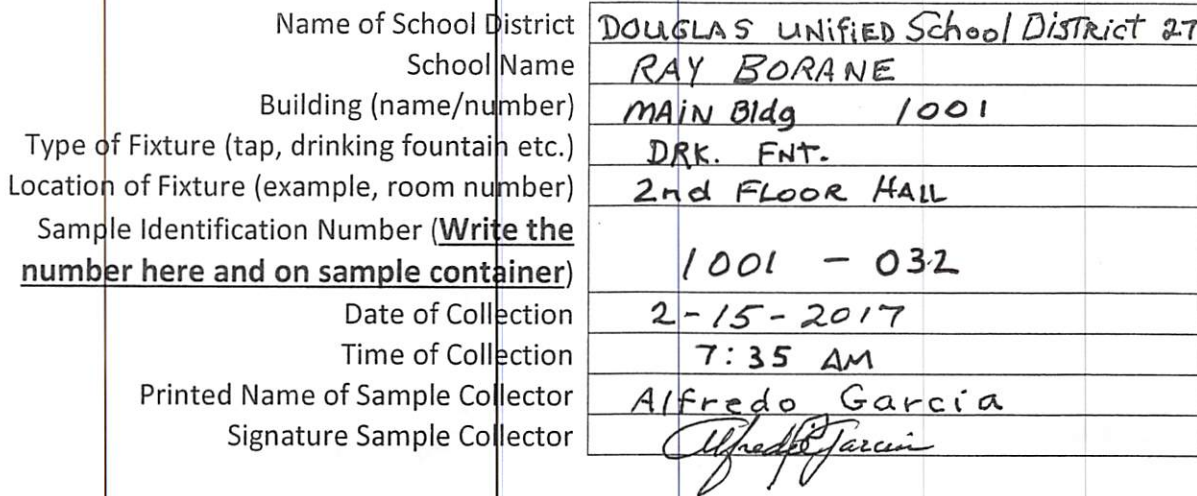 Name of School District DOUGLAS UNIFIED School DISTRICT 27
School Name RAY BORANE
Building (name/number) MAIN Bldg 1001
Type of Fixture (tap, drinking fountain etc.) DRK. FNT.
Location of Fixture (example, room number) 2nd FLOOR HALL
Sample Identification Number (Write the
number here and on sample container) 1001 - 032
Date of Collection 2-15-2017
Time of Collection 7:35 AM
Printed Name of Sample Collector Alfredo Garcia
Signature Sample Collector Alfredo Garcia